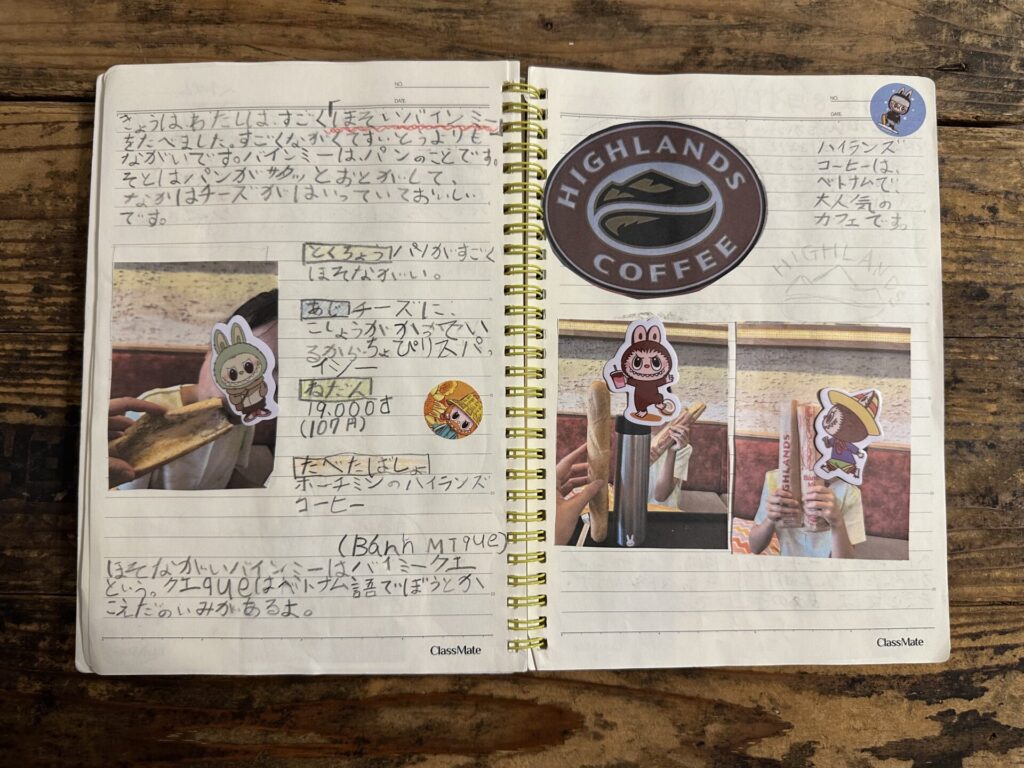 NO.
DATE.
きょうはわたしは、すごく「ほそいバインミー」
をたべました。すごくながくてすいとうよりも
ながいです。バインミーは、パンのことです。
そとはパンがサクッとおとがして、
なかはチーズがはいっていておいしい
です。
とくちょう パンがすごく
ほそながい。
あじ チーズに、
こしょうがかかってい
るから、ちょぴりスパ
イシー
ねだん
19.000đ
(107円)
たべたばしょ
ホーチミンのハイランズ
コーヒー
(Bánh MIque)
ほそながいバインミーはバイミークエ
という。クエqueはベトナム語でぼうとか
こえだのいみがあるよ。
ClassMate
NO.
DATE.
HIGHLANDS
COFFEE
ハイランズ
コーヒーは、
ベトナムで、
大人気の
カフェです。
HIGHLANDS
HIGHLANDS
ClassMate